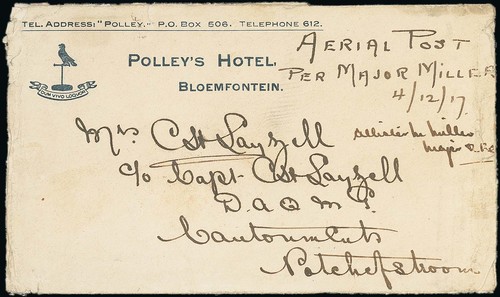 TEL. ADDRESS: "POLLEY." P.O. BOX 506. TELEPHONE 612.
DUM VIVO LOQUOR
POLLEY'S HOTEL,
BLOEMFONTEIN.
AERIAL POST
PER MAJOR MILLER
4/12/17.
Allister M Miller
Major R.F.C
Mrs C St Layzell
c/o Capt C St Layzell
D.A.Q.M.G.
Cantonments
Potchefstroom